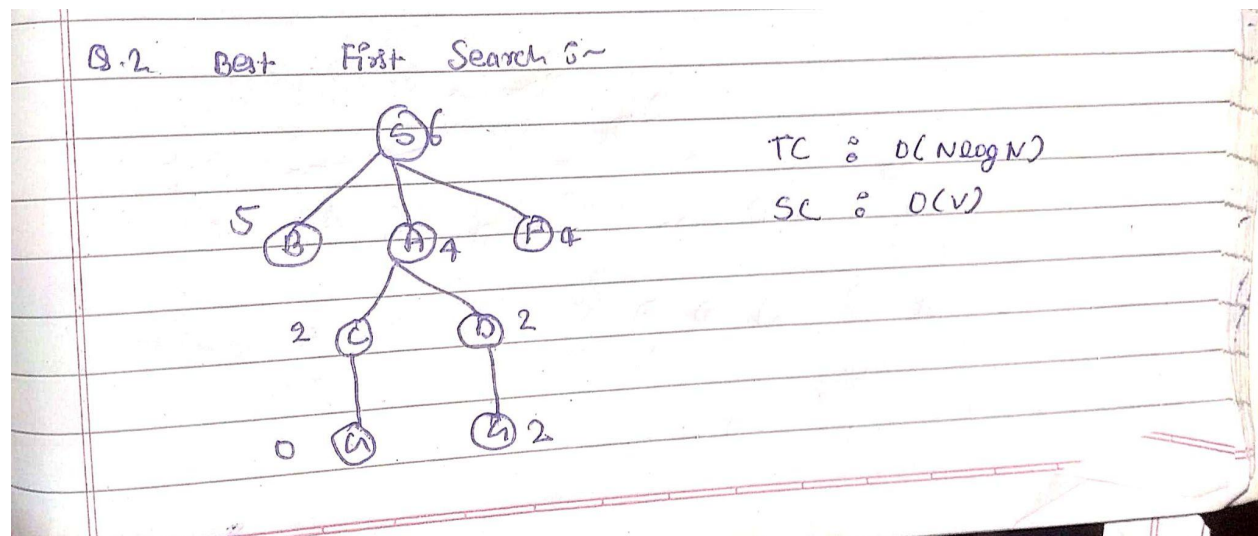 Q.2 Best First Search :~
S 6
TC : O(NlogN)
SC : O(V)
5 B A 4 F 4
2 C D 2
0 G G 2